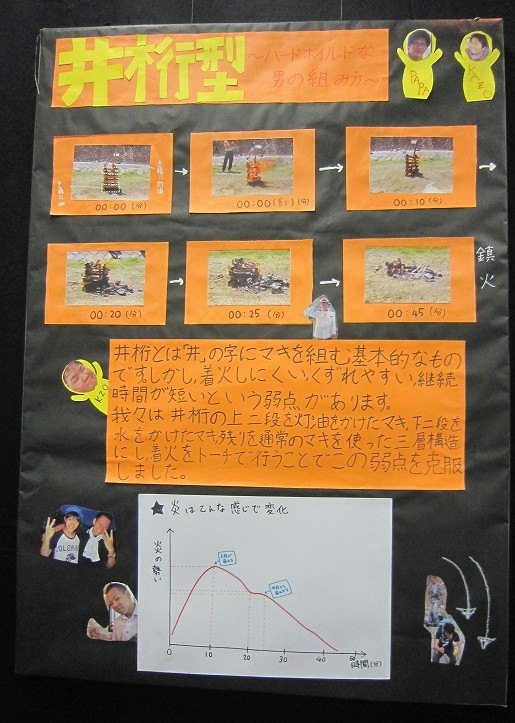 井桁型
～ハードボイルドな
男の組み方～
PAPA
KAZO
00:00(分)
00:00(分)
00:10(分)
00:20(分)
00:25(分)
00:45(分)
鎮火
井桁とは「井」の字にマキを組む基本的なもの
です。しかし、着火しにくい、くずれやすい、継続
時間が短いという弱点があります。
我々は井桁の上二段を灯油をかけたマキ、下二段を
水をかけたマキ、残りを通常のマキを使った三層構造
にし、着火をトーチで行うことでこの弱点を克服
しました。
KZO
★炎はこんな感じで変化
炎の勢い
0
10
20
30
40
50
時間(分)
COLORADO